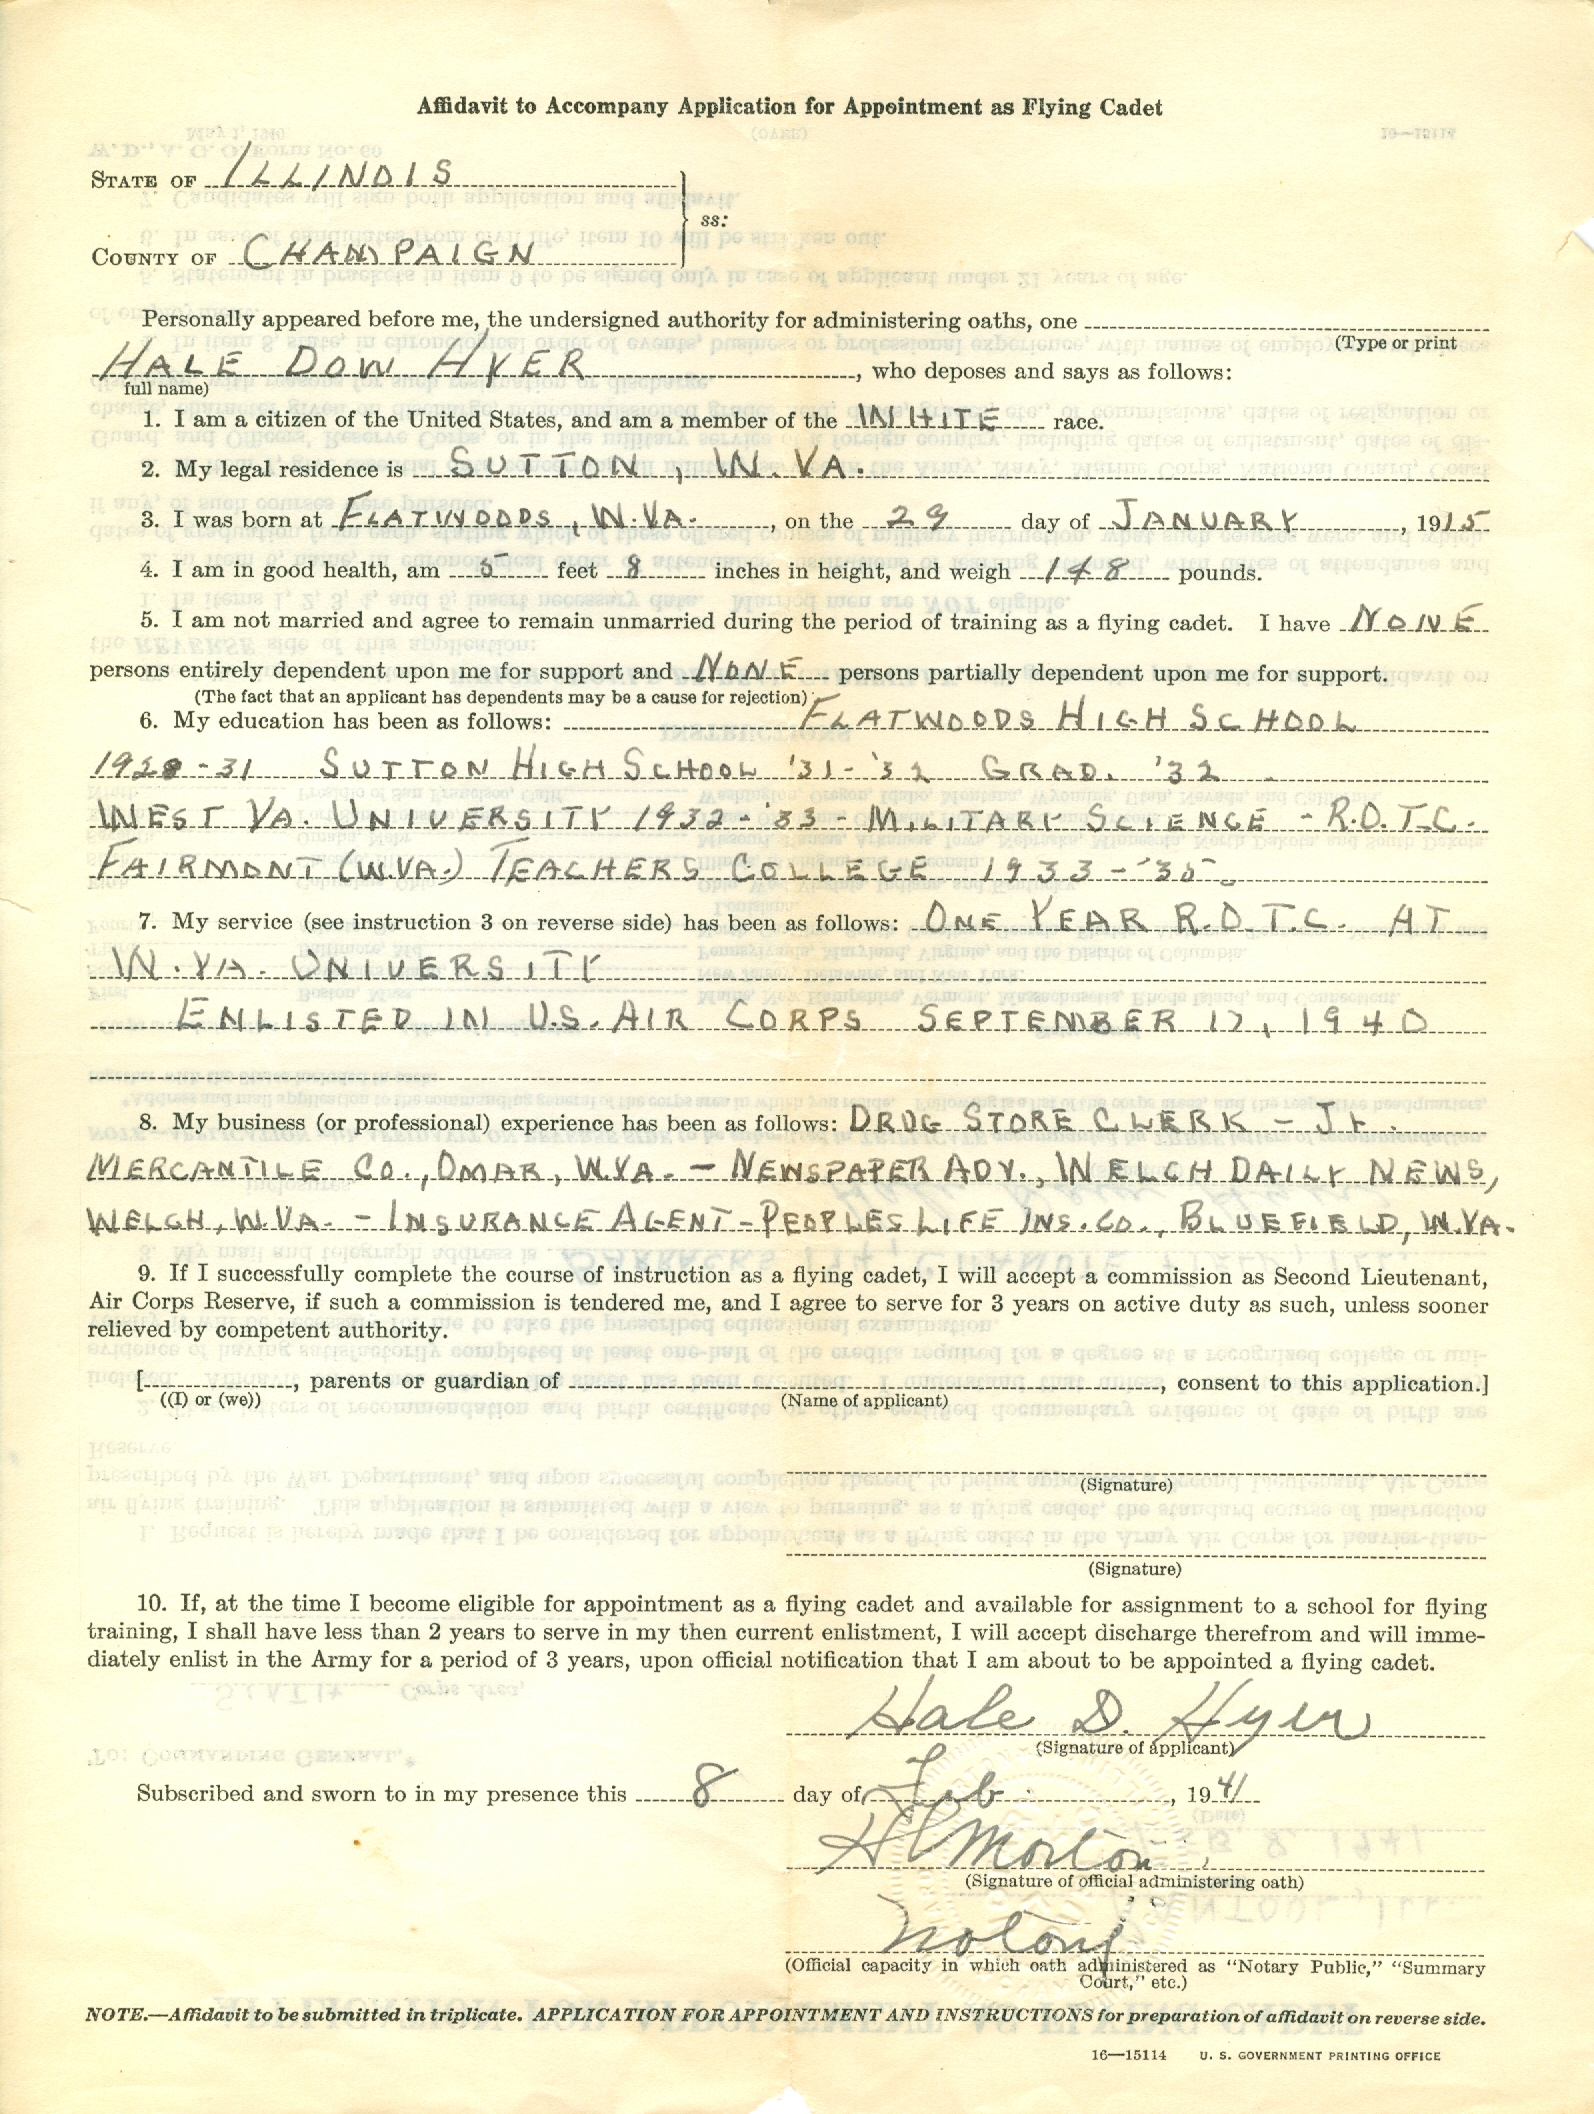 Affidavit to Accompany Application for Appointment as Flying Cadet
STATE OF ILLINOIS
ss:
COUNTY OF CHAMPAIGN
Personally appeared before me, the undersigned authority for administering oaths, one
(Type or print
HALE DOW HYER, who deposes and says as follows:
full name)
1. I am a citizen of the United States, and am a member of the WHITE race.
2. My legal residence is SUTTON, W. VA.
3. I was born at FLATWOODS, W. VA., on the 29 day of JANUARY, 1915
4. I am in good health, am 5 feet 8 inches in height, and weigh 148 pounds.
5. I am not married and agree to remain unmarried during the period of training as a flying cadet. I have NONE
persons entirely dependent upon me for support and NONE persons partially dependent upon me for support.
(The fact that an applicant has dependents may be a cause for rejection)
6. My education has been as follows: FLATWOODS HIGH SCHOOL
1928-31 SUTTON HIGH SCHOOL '31-'32 GRAD. '32
WEST VA. UNIVERSITY 1932-'33 - MILITARY SCIENCE - R.O.T.C.
FAIRMONT (W.VA.) TEACHERS COLLEGE 1933-'35.
7. My service (see instruction 3 on reverse side) has been as follows: ONE YEAR R.O.T.C. AT
W. VA. UNIVERSITY
ENLISTED IN U.S. AIR CORPS SEPTEMBER 17, 1940
8. My business (or professional) experience has been as follows: DRUG STORE CLERK -
MERCANTILE CO., OMAR, W.VA. - NEWSPAPER ADV., WELCH DAILY NEWS,
WELCH, W.VA. - INSURANCE AGENT - PEOPLES LIFE INS. CO., BLUEFIELD, W.VA.
9. If I successfully complete the course of instruction as a flying cadet, I will accept a commission as Second Lieutenant,
Air Corps Reserve, if such a commission is tendered me, and I agree to serve for 3 years on active duty as such, unless sooner
relieved by competent authority.
[, parents or guardian of, consent to this application.]
((I) or (we)) (Name of applicant)
(Signature)
(Signature)
10. If, at the time I become eligible for appointment as a flying cadet and available for assignment to a school for flying
training, I shall have less than 2 years to serve in my then current enlistment, I will accept discharge therefrom and will imme-
diately enlist in the Army for a period of 3 years, upon official notification that I am about to be appointed a flying cadet.
Hale D. Hyer
(Signature of applicant)
Subscribed and sworn to in my presence this 8 day of Feb, 1941
Morton
(Signature of official administering oath)
Notary
(Official capacity in which oath administered as "Notary Public," "Summary
Court," etc.)
NOTE.—Affidavit to be submitted in triplicate. APPLICATION FOR APPOINTMENT AND INSTRUCTIONS for preparation of affidavit on reverse side.
16—15114 U. S. GOVERNMENT PRINTING OFFICE